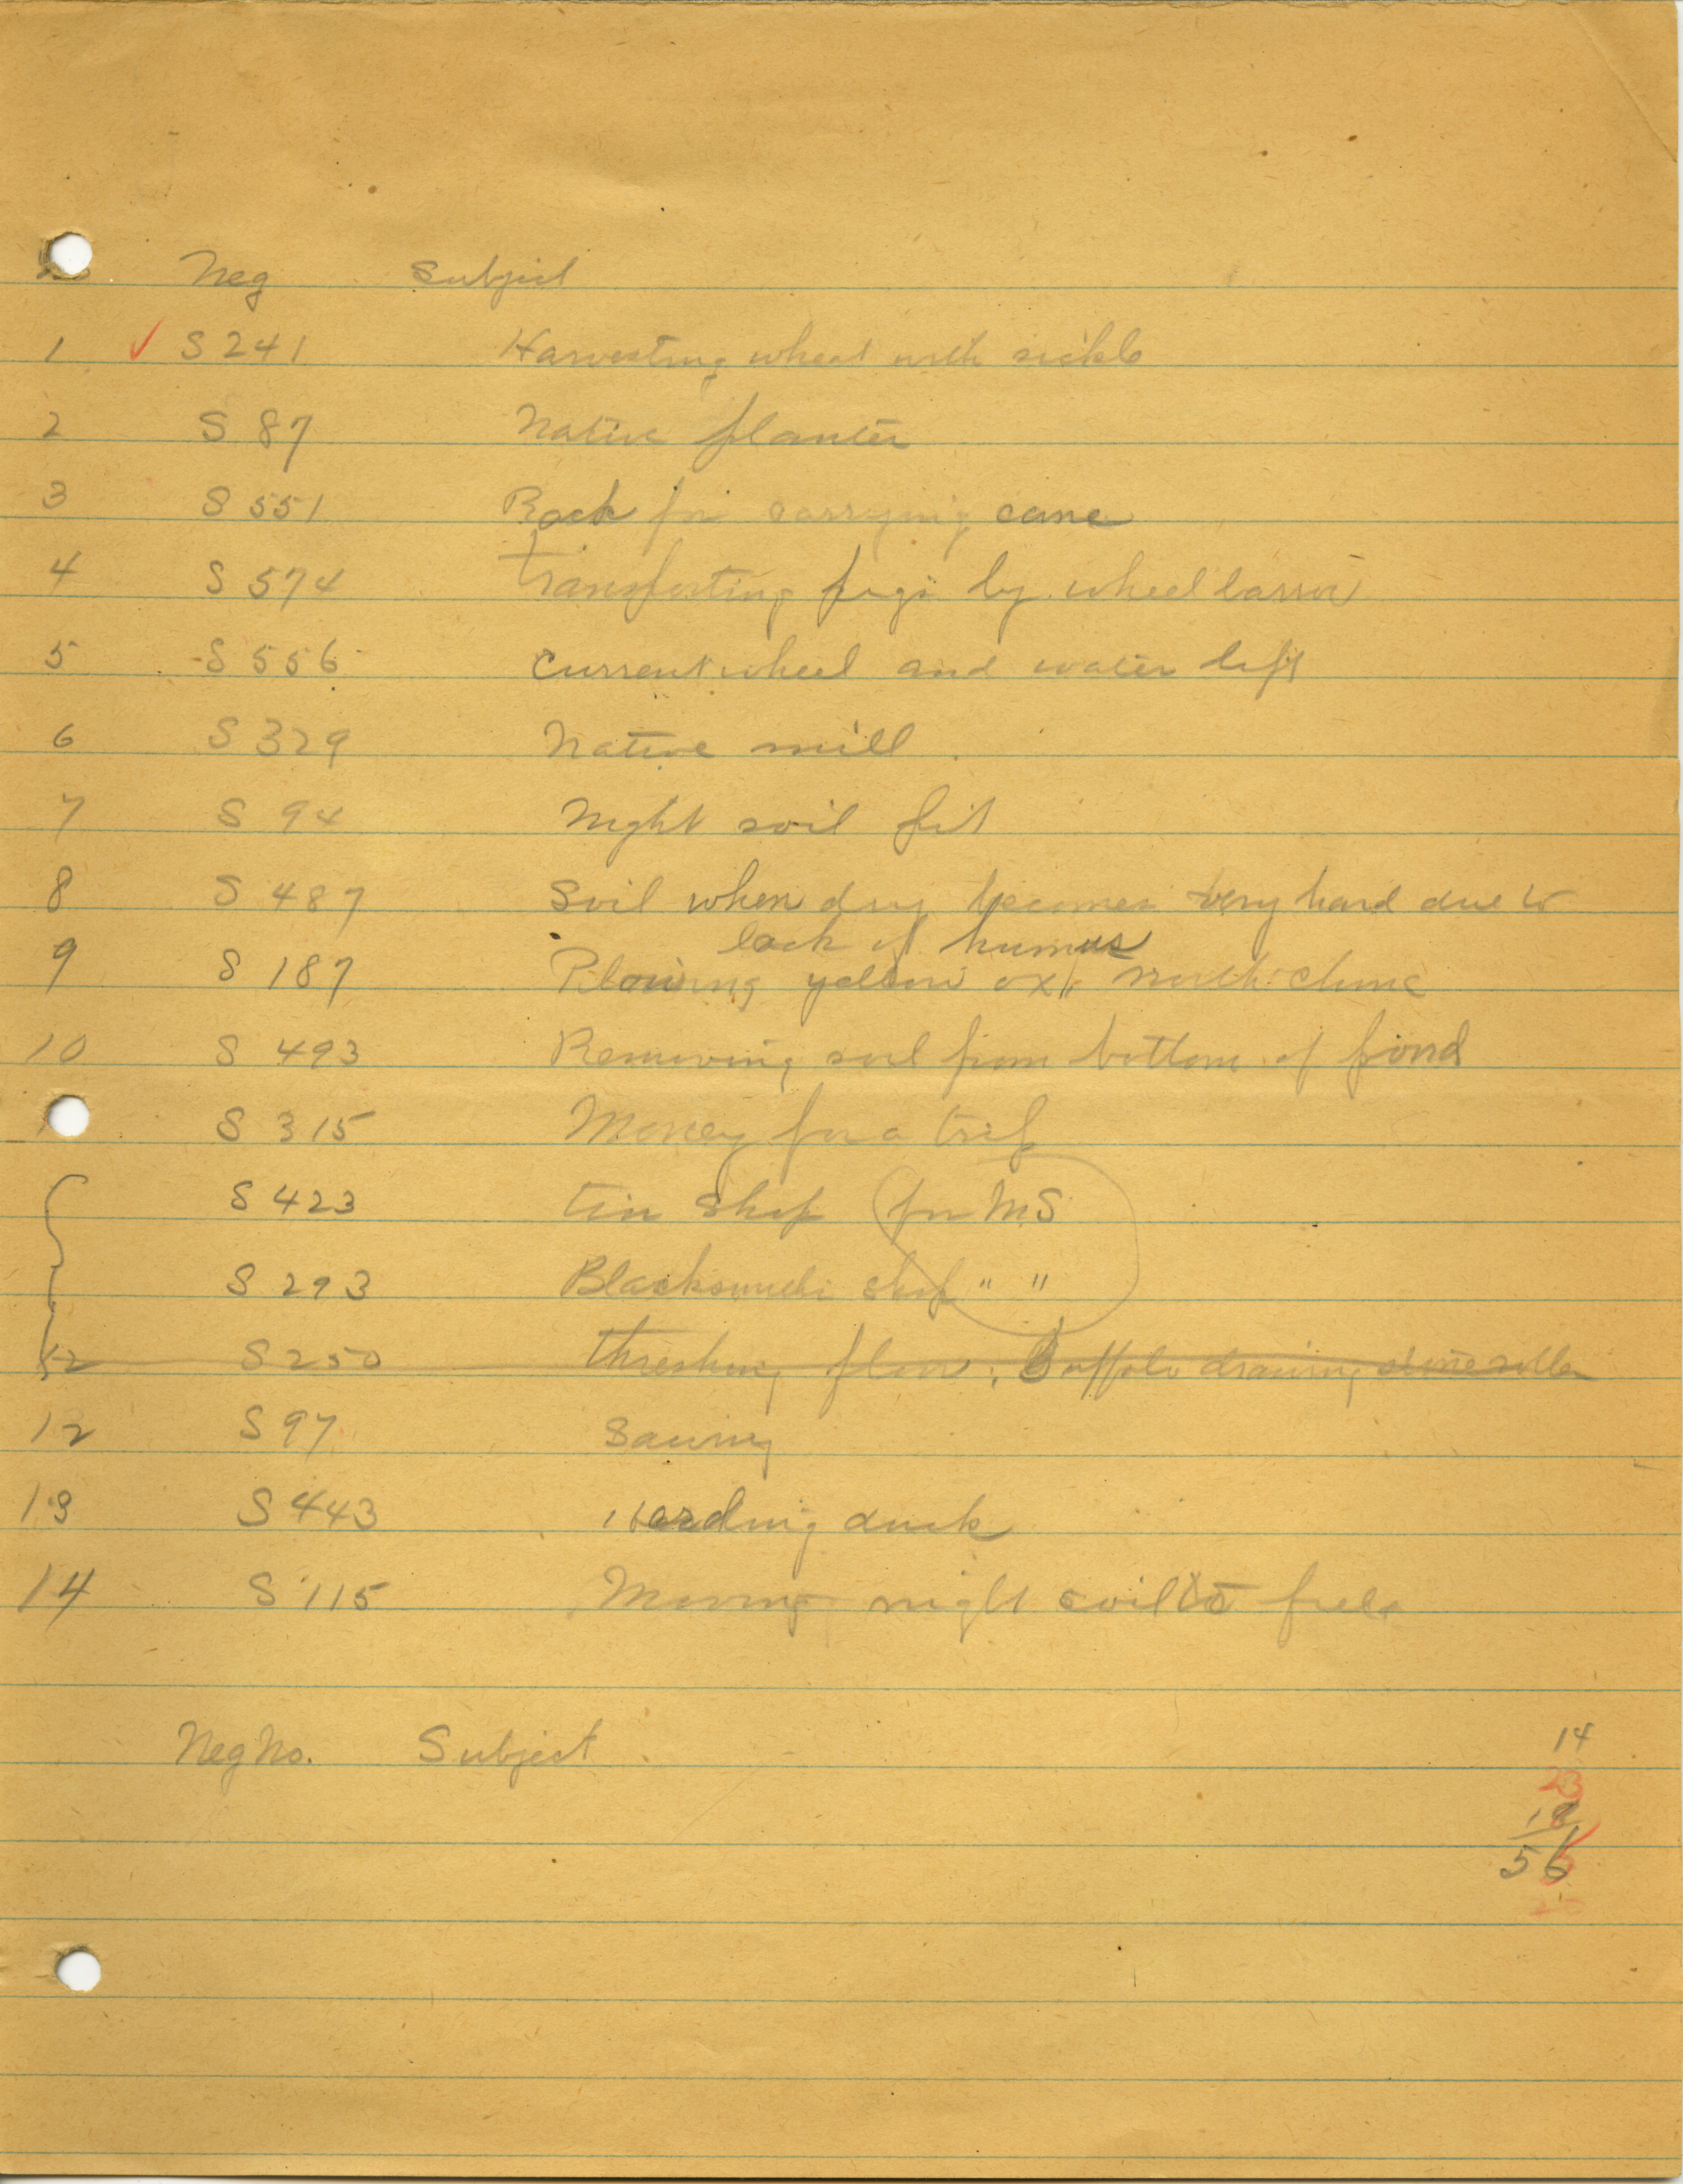 No Neg Subject
1 ✓ S 241 Harvesting wheat with sickle
2 S 87 Native planter
3 S 551 Rack for carrying cane
4 S 574 Transporting pigs by wheel barrow
5 S 556 Current wheel and water lift
6 S 329 Native mill
7 S 94 Night soil pit
8 S 487 Soil when dry becomes very hard due to
lack of humus
9 S 187 Plowing yellow ox, north China
10 S 493 Removing soil from bottom of pond
S 315 Money for a trip
S 423 tin shop (for MS
S 293 Blacksmith shop " "
12 S 250 threshing floor; Buffalo drawing stone roller
12 S 97 Sawing
13 S 443 Herding duck
14 S 115 Moving night soil to field
Neg No. Subject
14
23
18
56